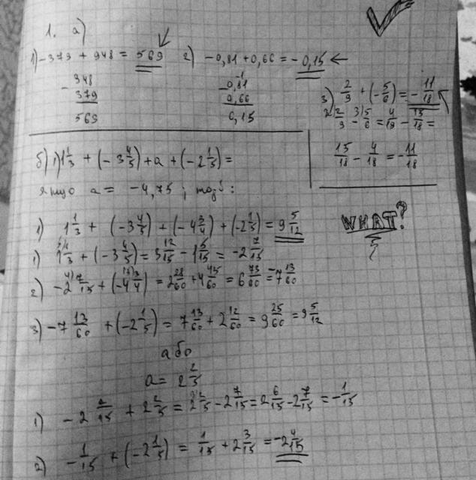 1. а)
1) -379 + 948 = 569 2) -0,81 + 0,66 = -0,15 ←
- 948
379
569
- 0,81
0,66
0,15
3) 2/9 + (-5/6) = -11/18
2/9 - 5/6 = 4/18 - 15/18 =
15/18 - 4/18 = -11/18
б) 1) 1 1/3 + (-3 4/5) + a + (-2 1/5) =
якщо a = -4,75 ; тоді :
1) 1 1/3 + (-3 4/5) + (-4 3/4) + (-2 1/5) = 9 5/12
1) 1 1/3 + (-3 4/5) = 3 12/15 - 1 5/15 = -2 7/15
2) -2 7/15 + (-4 3/4) = 2 28/60 + 4 45/60 = 6 73/60 = -7 13/60
3) -7 13/60 + (-2 1/5) = 7 13/60 + 2 12/60 = 9 25/60 = 9 5/12
або
a = 2 2/5
1) -2 7/15 + 2 2/5 = 2 2/5 - 2 7/15 = 2 6/15 - 2 7/15 = -1/15
2) -1/15 + (-2 1/5) = 1/15 + 2 3/15 = -2 4/15
WHAT?